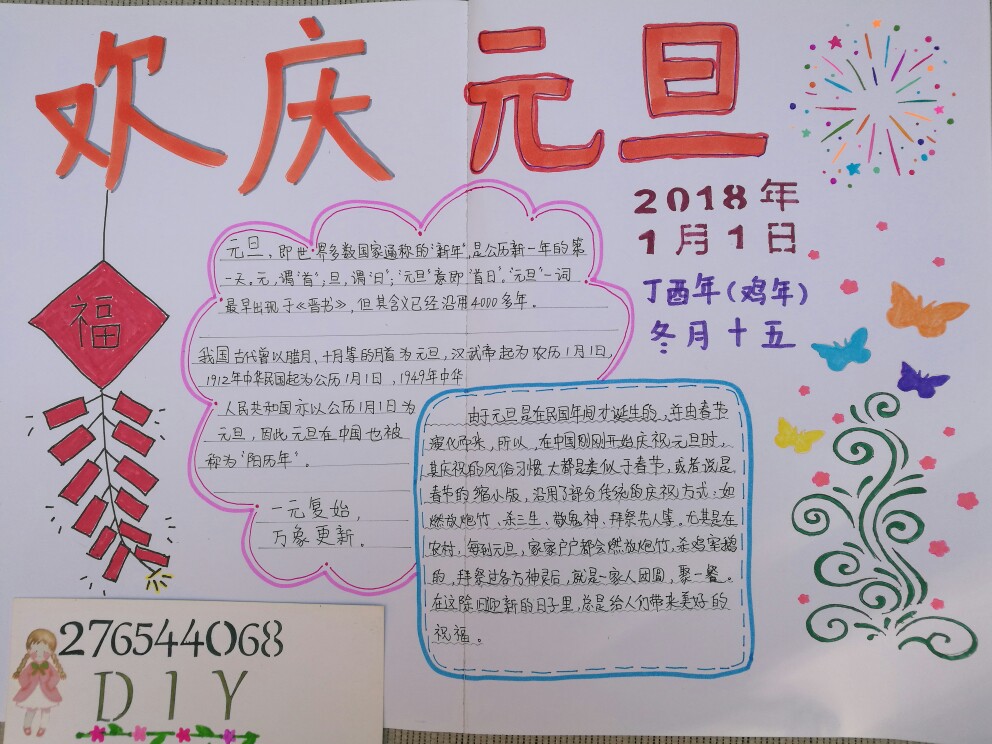 欢庆元旦
2018年
1月1日
丁酉年(鸡年)
冬月十五
福
元旦,即世界多数国家通称的“新年”,是公历新一年的第
一天。元,谓“首”;旦,谓“日”;“元旦”意即“首日”。“元旦”一词
最早出现于《晋书》,但其含义已经沿用4000多年。
我国古代曾以腊月、十月等的月首为元旦,汉武帝起为农历1月1日,
1912年中华民国起为公历1月1日,1949年中华
人民共和国亦以公历1月1日为
元旦,因此元旦在中国也被
称为“阳历年”。
一元复始,
万象更新。
由于元旦是在民国年间才诞生的,并由春节
演化而来,所以,在中国刚刚开始庆祝元旦时,
其庆祝的风俗习惯大都是类似于春节,或者说是
春节的缩小版,沿用了部分传统的庆祝方式:如
燃放炮竹、杀三生、敬鬼神、拜祭先人等。尤其是在
农村,每到元旦,家家户户都会燃放炮竹,杀鸡宰鹅
的,拜祭过各方神灵后,就是一家人团圆,聚一餐。
在这除旧迎新的日子里,总是给人们带来美好的
祝福。
276544068
DIY